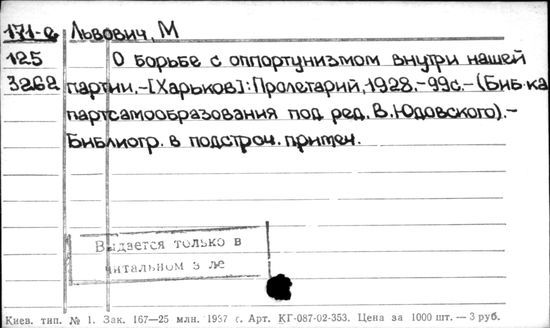 171-е Львович, М
125 О борьбе с оппортунизмом внутри нашей
3262 партии.-[Харьков]:Пролетарий,1928.-99с.-(Биб-ка
партсамообразования под ред. В.Юдовского).-
Библиогр. в подстроч. примеч.
Выдается только в
читальном з ле
Киев. тип. № 1. Зак. 167—25 млн. 1937 г. Арт. КГ-087-02-353. Цена за 1000 шт. — 3 руб.